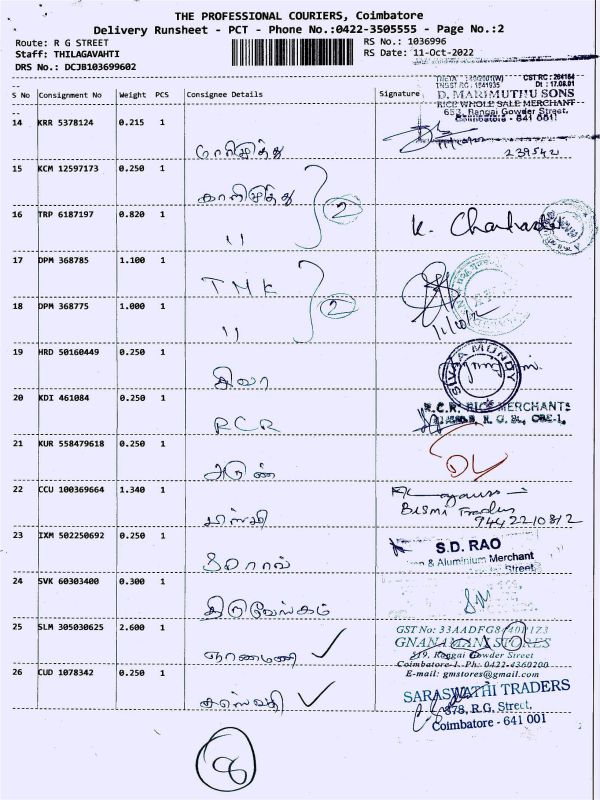 THE PROFESSIONAL COURIERS, Coimbatore
Delivery Runsheet - PCT - Phone No.:0422-3505555 - Page No.:2
Route: R G STREET RS No.: 1036996
Staff: THILAGAVAHTI RS Date: 11-Oct-2022
DRS No.: DCJB103699602
S No Consignment No Weight PCS Consignee Details Signature
CST RC : 264164
TNGST RC : 1841935 Dt : 17.09.01
D. MARIMUTHU SONS
RICE WHOLE SALE MERCHANT
653, Rangai Gowder Street,
Coimbatore - 641 001
14 KRR 5378124 0.215 1 மாரிமுத்து
239542
15 KCM 12597173 0.250 1 காளிமுத்து
2
16 TRP 6187197 0.820 1 11 K.
17 DPM 368785 1.100 1 TMK
2
18 DPM 368775 1.000 1 11 11/10/2
19 HRD 50160449 0.250 1 சிவா SIVAA MUNDY
20 KDI 461084 0.250 1 RCR R.C.R. RICE MERCHANTS
R. G. St., CBE-1.
21 KUR 558479618 0.250 1 அருண்
22 CCU 100369664 1.340 1 பிஸ்மி
BISMI Traders
9442210812
23 IXM 502250692 0.250 1 SDராவ் S.D. RAO
& Aluminium Merchant
Street
24 SVK 60303400 0.300 1 திருவேங்கடம் SM
25 SLM 305030625 2.600 1 ஞானமணி GST No: 33AADFG8401
GNANAMANI STORES
319, Rangai Gowder Street
Coimbatore-1. Ph: 0422-4360200
E-mail: gmstores@gmail.com
26 CUD 1078342 0.250 1 சரஸ்வதி SARASWATHI TRADERS
378, R.G. Street,
Coimbatore - 641 001
8